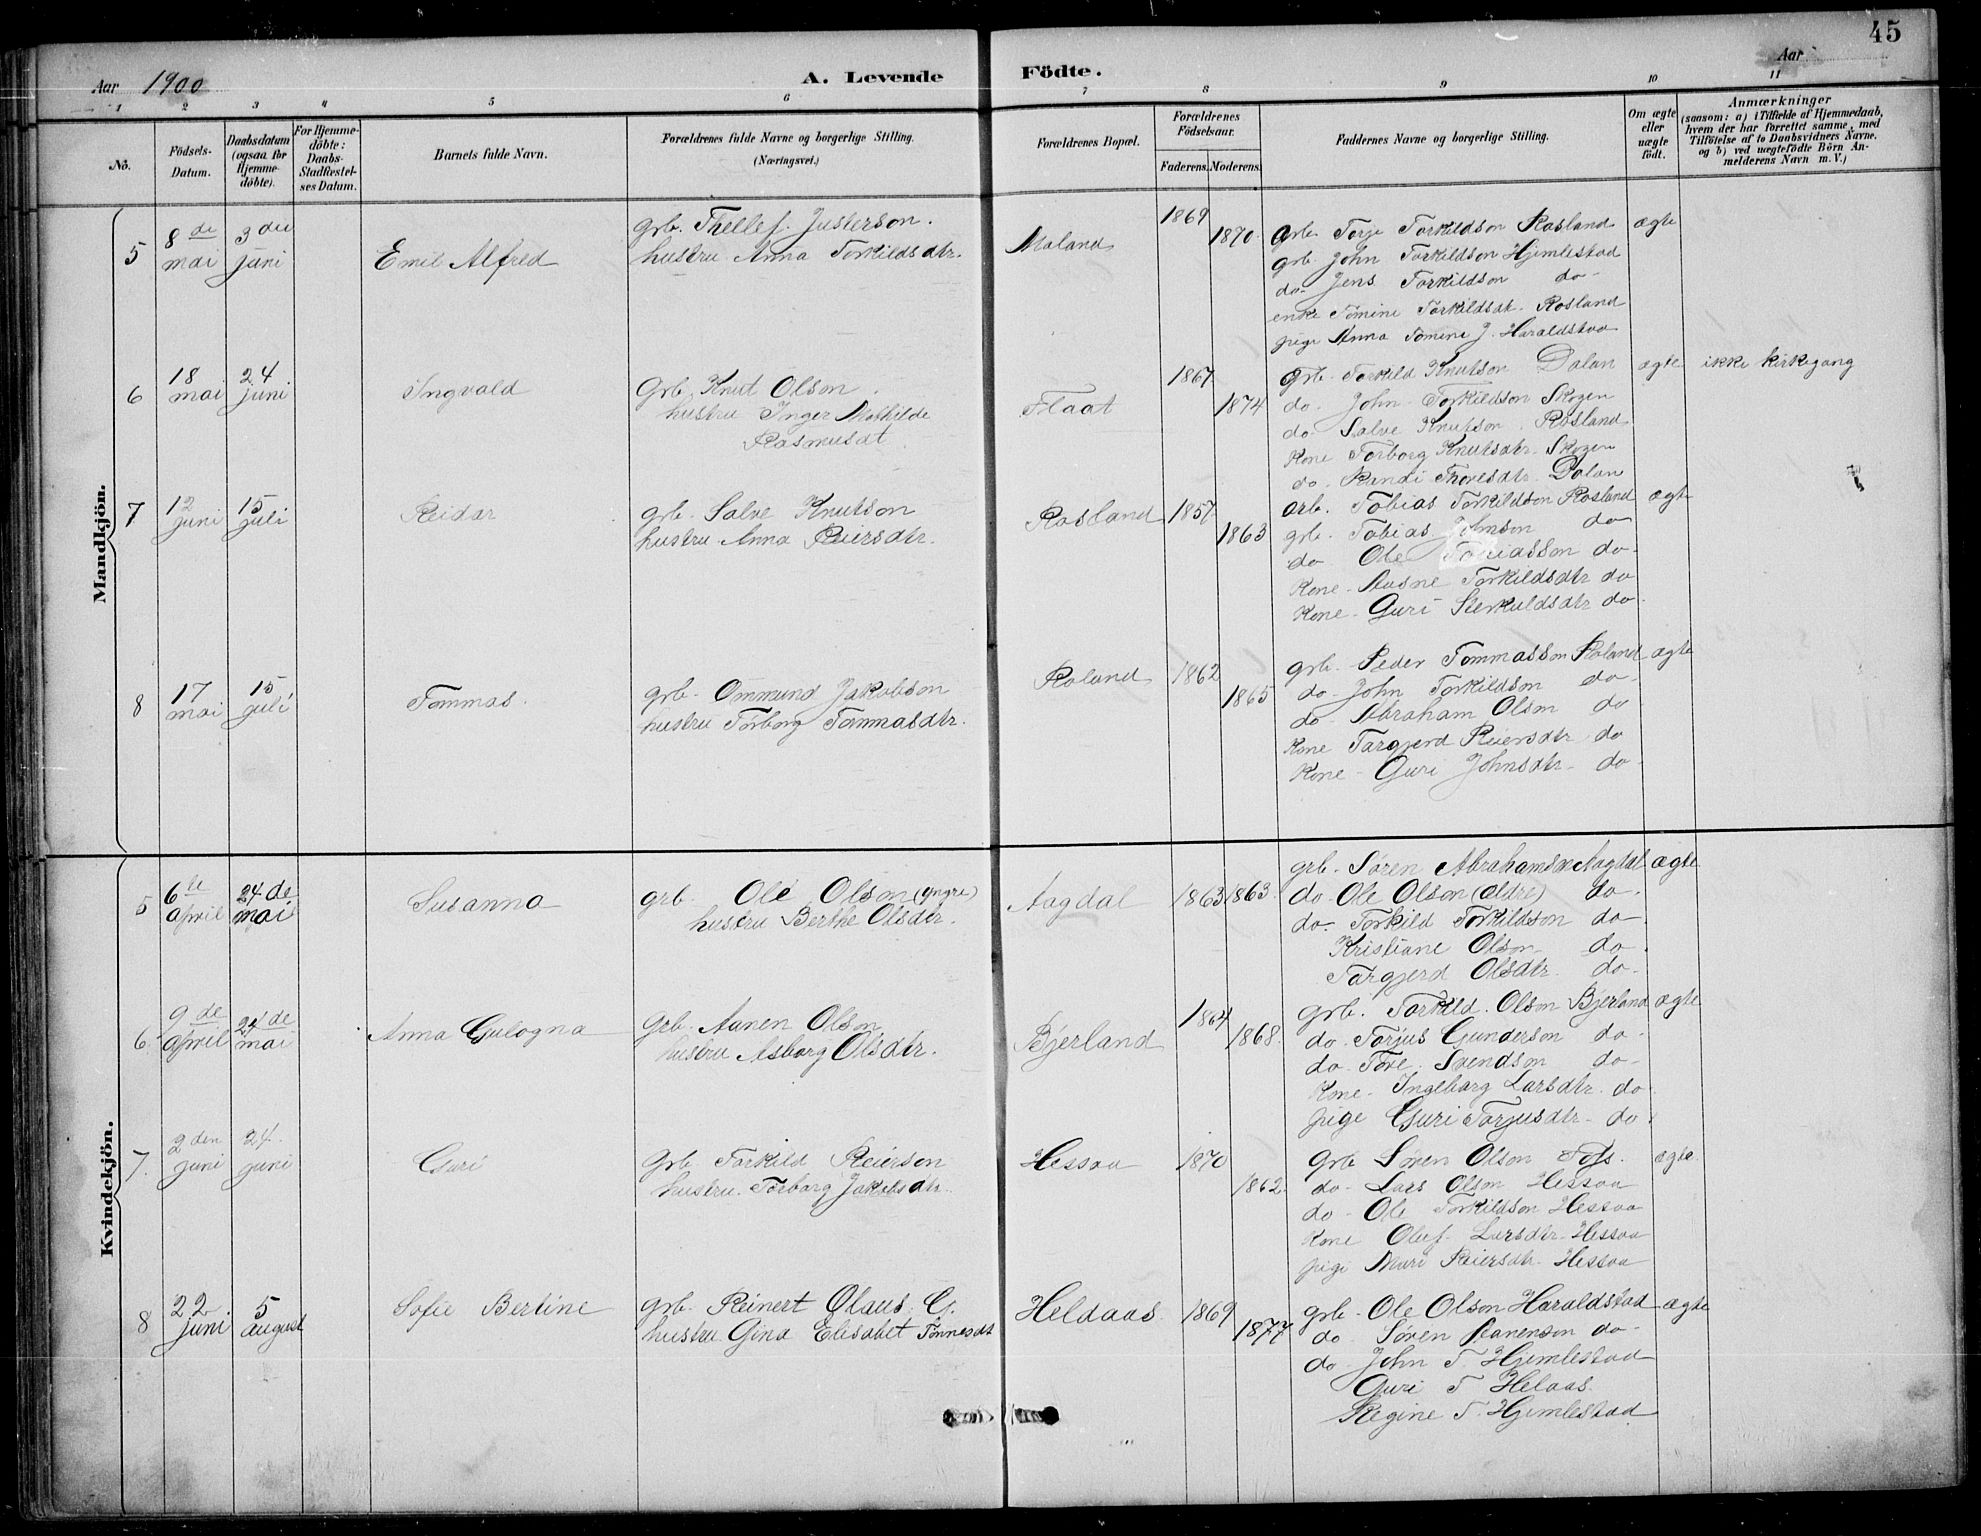 45
Aar 1900
A. Levende Födte.
Aar
1 2 3 4 5 6 7 8 9 10 11
No.
Födsels-Datum.
Daabsdatum (ogsaa for Hjemme-döbte).
For Hjemme-döbte: Daabs-Stadfæstel-ses Datum.
Barnets fulde Navn.
Forældrenes fulde Navne og borgerlige Stilling. (Næringsvei.)
Forældrenes Bopæl.
Forældrenes Födselsaar.
Faderens. Moderens.
Faddernes Navne og borgerlige Stilling.
Om ægte eller uægte födt.
Anmærkninger
(saasom: a) i Tilfælde af Hjemmedaab, hvem der har forrettet samme, med Tilföielse af to Daabsvidners Navne. og b) ved uægtefödte Börn An-melderens Navn m. V.)
Mandkjön.
5 8de mai 3die juni Emil Alfred
grb. Thellef Justerson.
hustru Anna Torkildsdtr.
Moland 1869 1870
grb. Torje Torkildson Rosland ægte
grb. John Torkildson Hjemlestad
do- Jens Torkildson do-
enke Tomine Torkildsdt. Rosland
pige Anna Tomine J. Haraldstaa
6 18 mai 24 juni Ingvald
Grb. Knut Olson.
hustru Inger Mathilde
Rasmusdt
Flaat 1867 1874
Grb. Torkild Knutson Dalan ægte ikke kirkegang
do. John Torkildson Skogen
do. Salve Knutson. Rosland
Kone Torborg Knutsdtr. Skogen
do. Randi Thoresdtr. Dalan
7 12 juni 15 juli Reidar
grb. Salve Knutson
hustru Anna Reiersdtr.
Rosland 1857 1863
Grb. Tobias Torkildson Rosland ægte
grb. Tobias Johnson do
do Ole Tobiasson do-
Kone- Aasne Torkildsdtr do
Kone- Guri Sterkuldsdtr do-
8 17 mai 15 juli Tommas.
grb. Ommund Jakobson
hustru Torborg Tommasdtr.
Roland 1862 1865
grb- Peder Tommasson Roland ægte
do- John Torkildson do-
do- Abraham Olson do
Kone Targjerd Reiersdtr do
Kone- Guri Johnsdtr- do-
Kvindekjön.
5 6te april 24de mai Susanna
grb. Ole Olson (yngre)
hustru Berthe Olsdtr.
Aagdal 1863 1863.
grb. Søren Abrahamsn Aagdal ægte
do- Ole Olson (ældre) do.
do- Torkild Torkildson do-
Kristiane Olson do.
Targjerd Olsdtr. do-
6 9de april 24de mai Anna Gulogna
Grb. Aanen Olson
hustru Asborg Olsdtr.
Bjerland 1864 1868.
grb. Torkild. Olson Bjerland ægte
do- Torjus Gunderson do-
do- Tore Svendson do-
Kone- Ingeborg Larsdtr. do.
pige Guri Torjusdtr- do.
7. 2den juni 24. juni Guri
Grb. Torkild Reierson
hustru. Torborg Jakobsdtr.
Hessaa 1870 1862.
Grb Søren Olson Tofs. ægte.
do- Lars Olson Hessaa
do- Ole Torkildson Hessaa
Kone Oluf- Larsdtr. Hessaa
pige Mari Reiersdtr- Hessaa
8 22 juni 5 august Sofie Bertine
grb. Reinert Olaus. G.
hustru Gina Elisabet Tønnesdt
Heldaas. 1869 1877
grb- Ole Olson Haraldstad ægte
do- Søren Aanenson do-
do- John T. Hjemlestad
Guri T Helaas.
Regine T. Hjemlestad